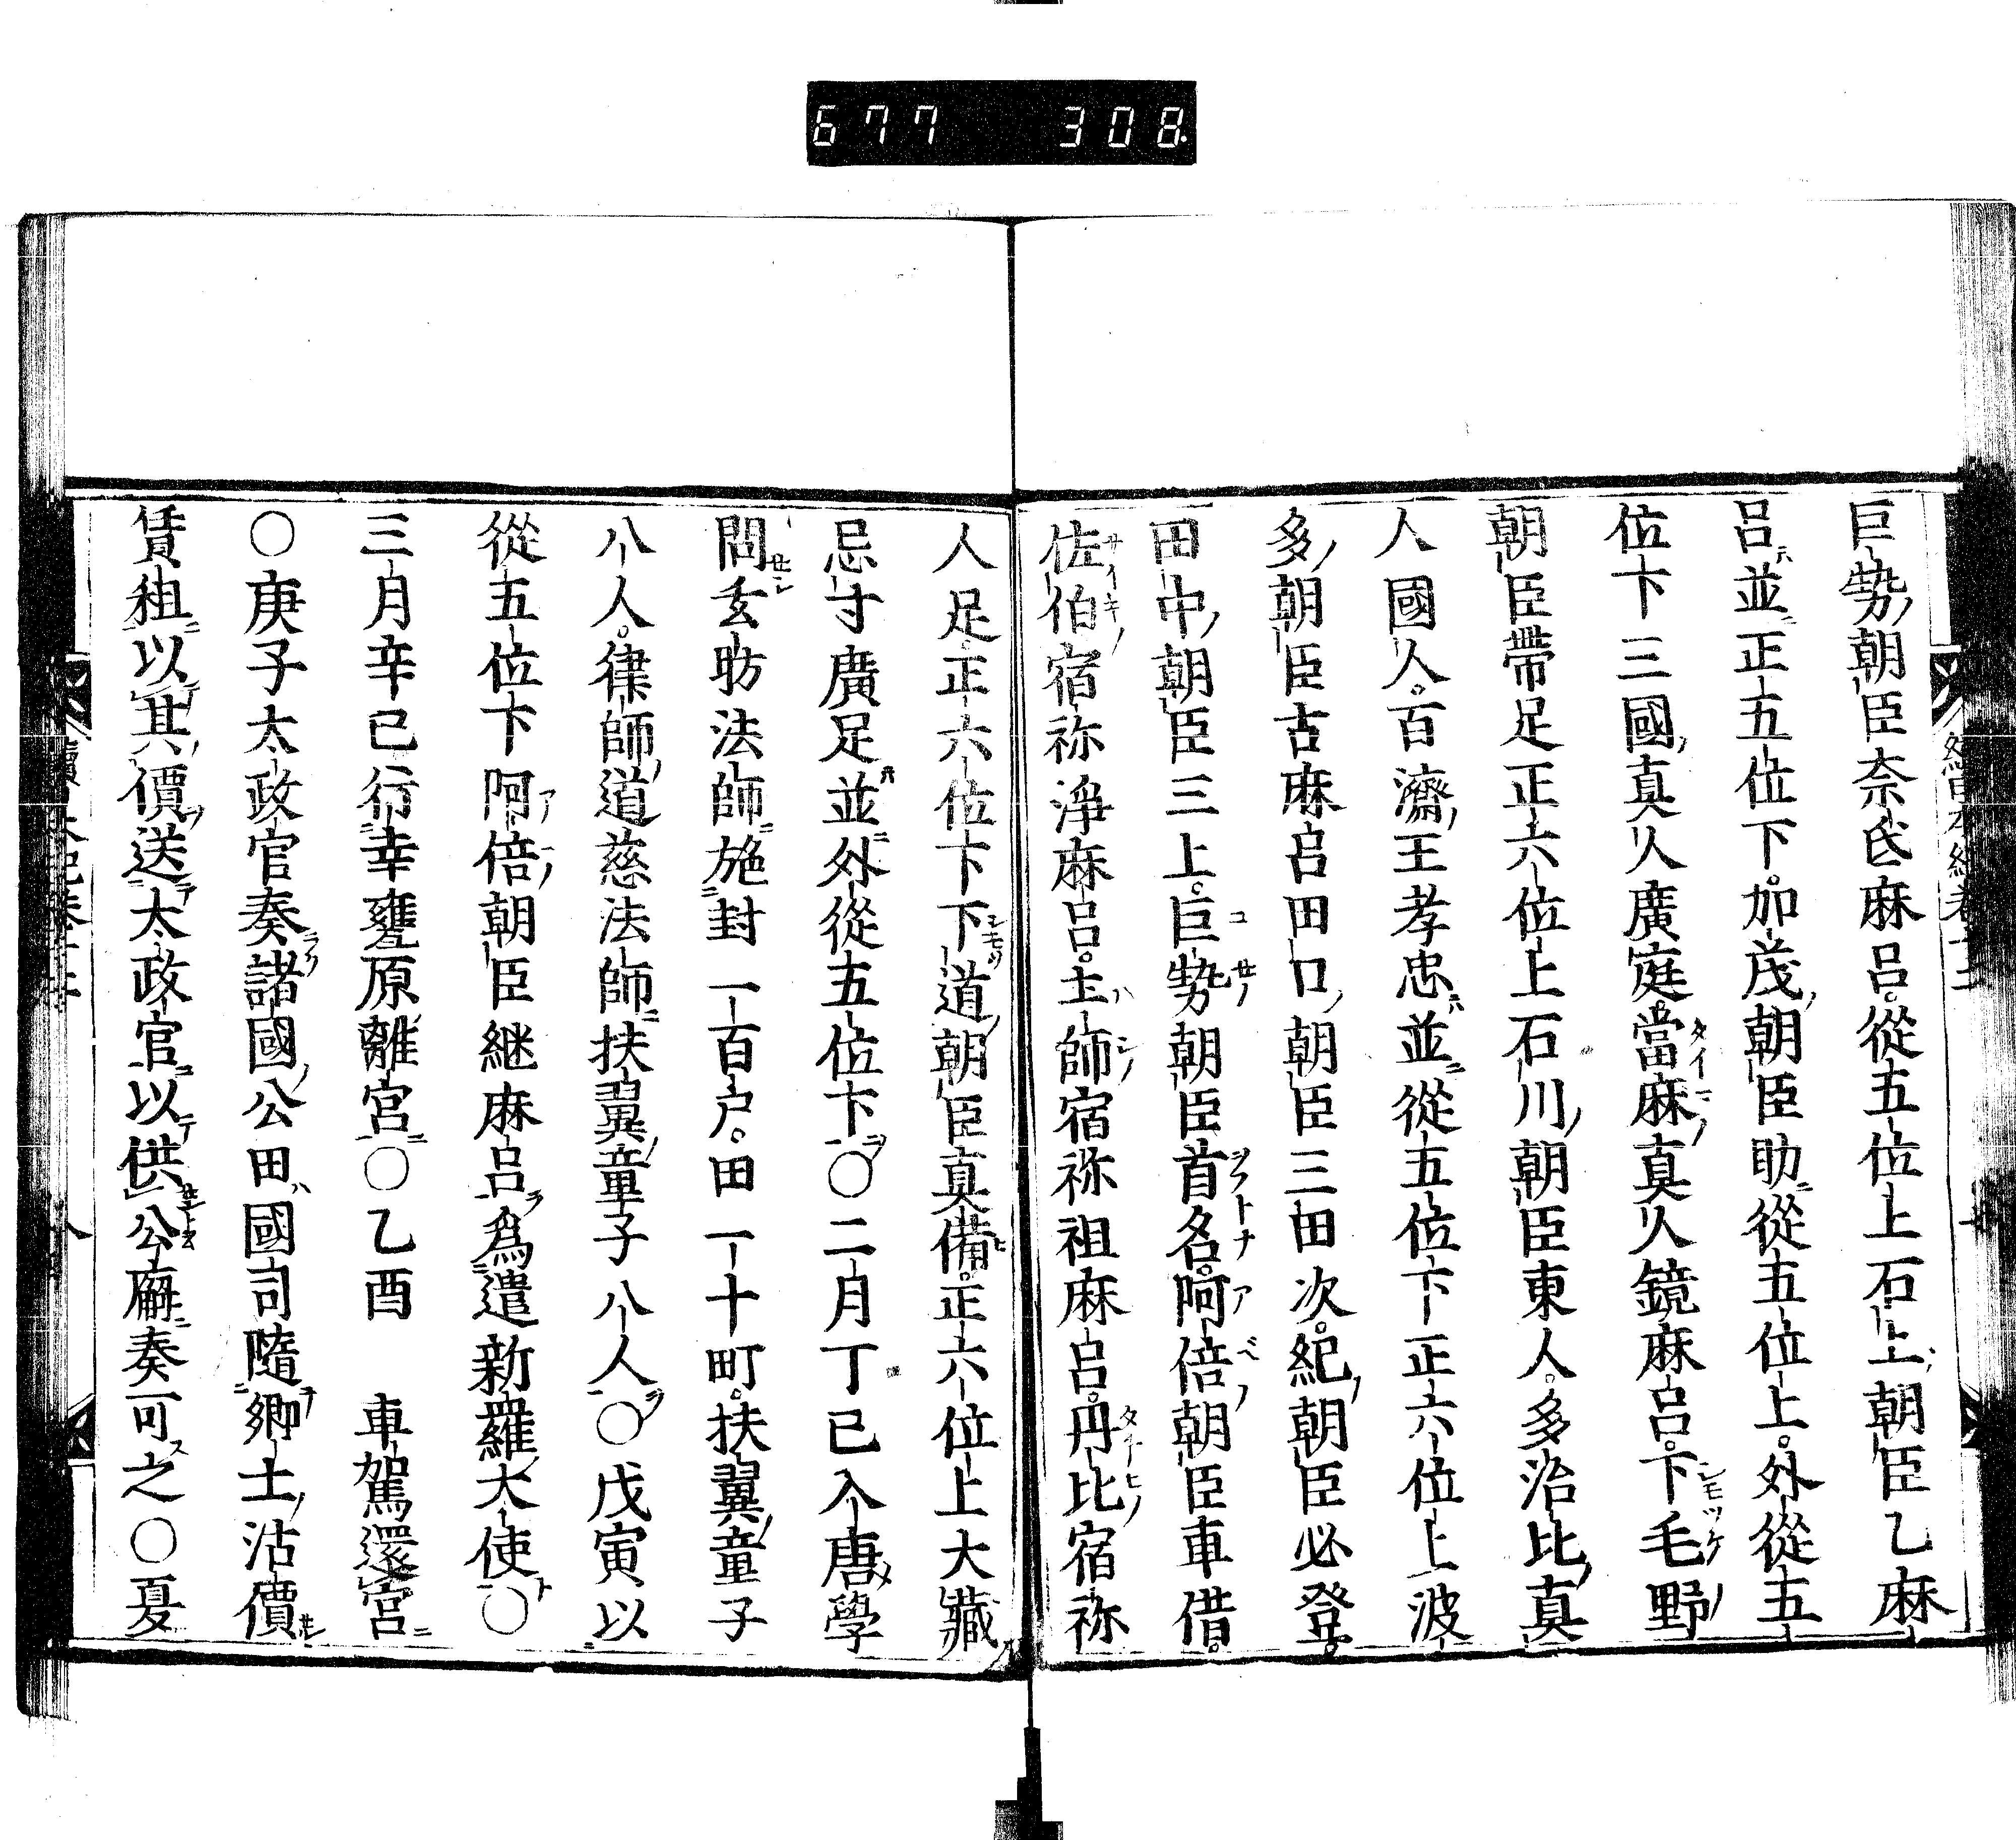 677 308
巨勢朝臣奈氐麻呂。從五位上石上朝臣乙麻
呂並正五位下。加茂朝臣助從五位上。外從五
位下三國真人廣庭。當麻真人鏡麻呂。下毛野
朝臣帶足正六位上石川朝臣東人。多治比真
人國人。百濟王孝忠並從五位下正六位上波
多朝臣古麻呂田口朝臣三田次。紀朝臣必登。
田中朝臣三上。巨勢朝臣首名。阿倍朝臣車借。
佐伯宿祢淨麻呂。土師宿祢祖麻呂。丹比宿祢
人足正六位下下道朝臣真備。正六位上大藏
忌寸廣足並外從五位下〇二月丁巳入唐學
問玄昉法師施封一百戶。田一十町。扶翼童子
八人。律師道慈法師扶翼童子八人〇戊寅以
從五位下阿倍朝臣継麻呂爲遣新羅大使〇
三月辛巳行幸甕原離宮〇乙酉 車駕還宮
〇庚子太政官奏諸國公田國司隨鄉土沽價
賃租以其價送太政官以供公廨奏可之〇夏